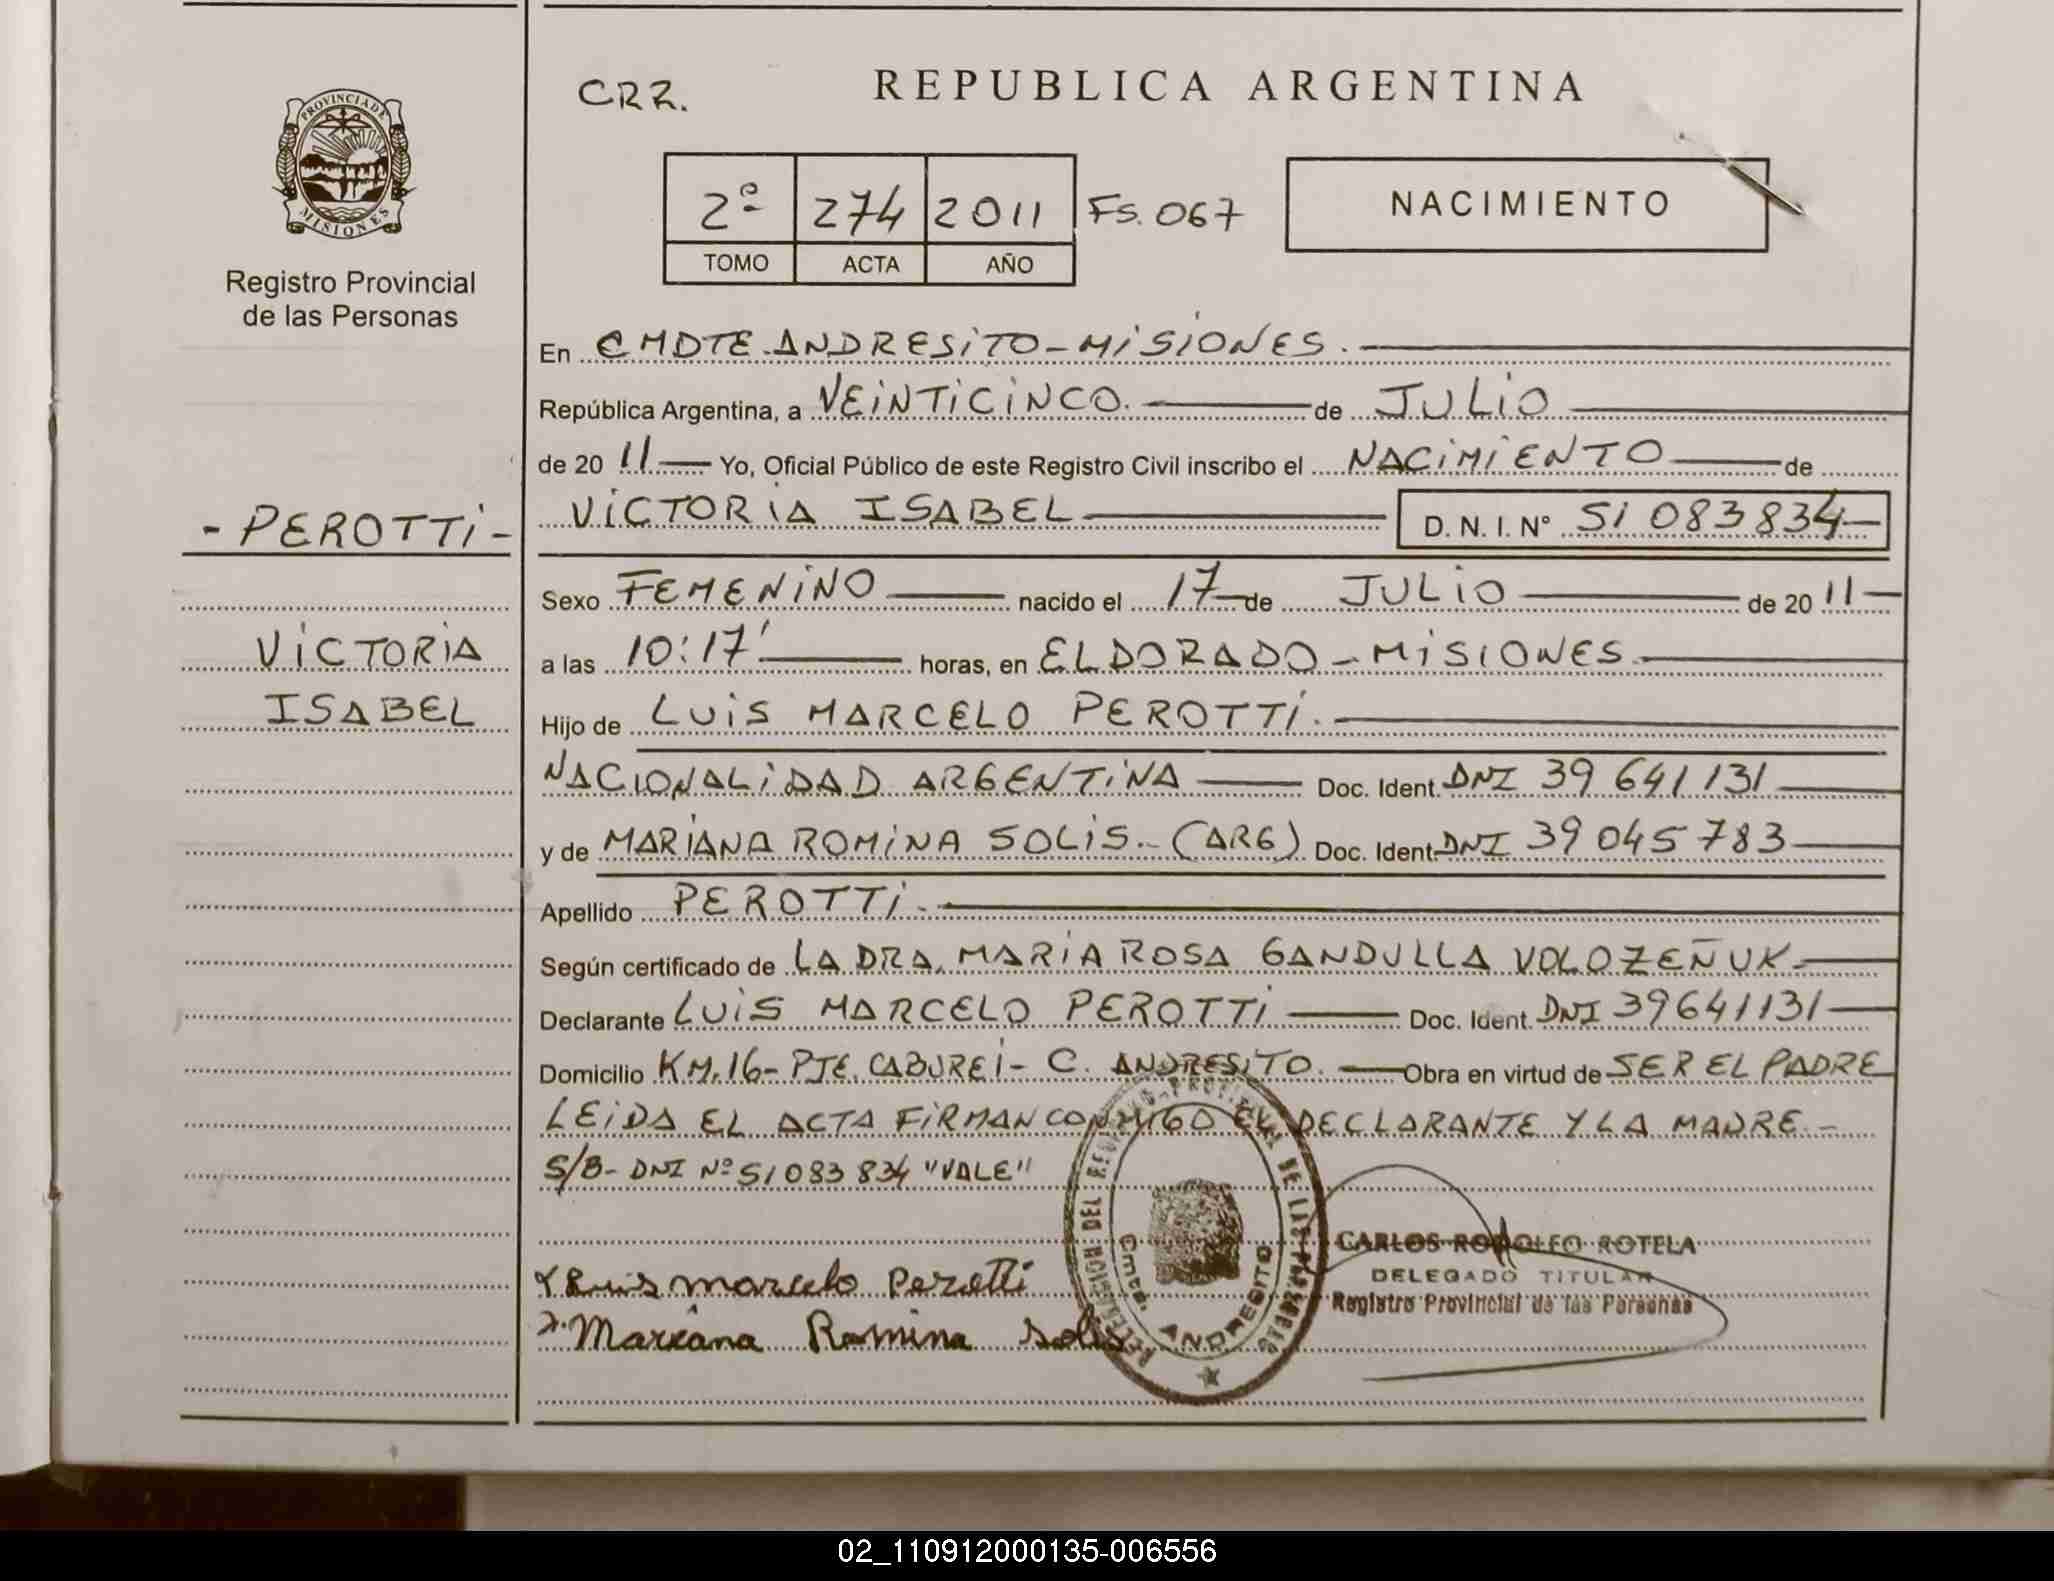 PROVINCIA DE
MISIONES
Registro Provincial
de las Personas
CRR.
REPUBLICA ARGENTINA
2º 274 2011 Fs. 067
TOMO ACTA AÑO
NACIMIENTO
En CMDTE ANDRESITO - MISIONES.
República Argentina, a VEINTICINCO. de JULIO
de 20 11 Yo, Oficial Público de este Registro Civil inscribo el NACIMIENTO de
VICTORIA ISABEL D. N. I. Nº 51 083 834
- PEROTTI -
VICTORIA
ISABEL
Sexo FEMENINO nacido el 17 de JULIO de 20 11
a las 10:17' horas, en ELDORADO - MISIONES
Hijo de LUIS MARCELO PEROTTI.
NACIONALIDAD ARGENTINA Doc. Ident. DNI 39 641 131
y de MARIANA ROMINA SOLIS.- (ARG) Doc. Ident. DNI 39 045 783
Apellido PEROTTI.
Según certificado de LA DRA. MARIA ROSA GANDULLA VOLOZEÑUK
Declarante LUIS MARCELO PEROTTI Doc. Ident. DNI 39641131
Domicilio KM. 16 - PJE. CABUREI - C. ANDRESITO. Obra en virtud de SER EL PADRE
LEIDA EL ACTA FIRMAN CONMIGO EL DECLARANTE Y LA MADRE.-
S/B- DNI Nº 51 083 834 "VALE"
Luis marcelo Perotti
Mariana Romina Solis
DELEGACION DEL REGISTRO PROVINCIAL DE LAS PERSONAS
Cmte. ANDRESITO
CARLOS RODOLFO ROTELA
DELEGADO TITULAR
Registro Provincial de las Personas
02_110912000135-006556